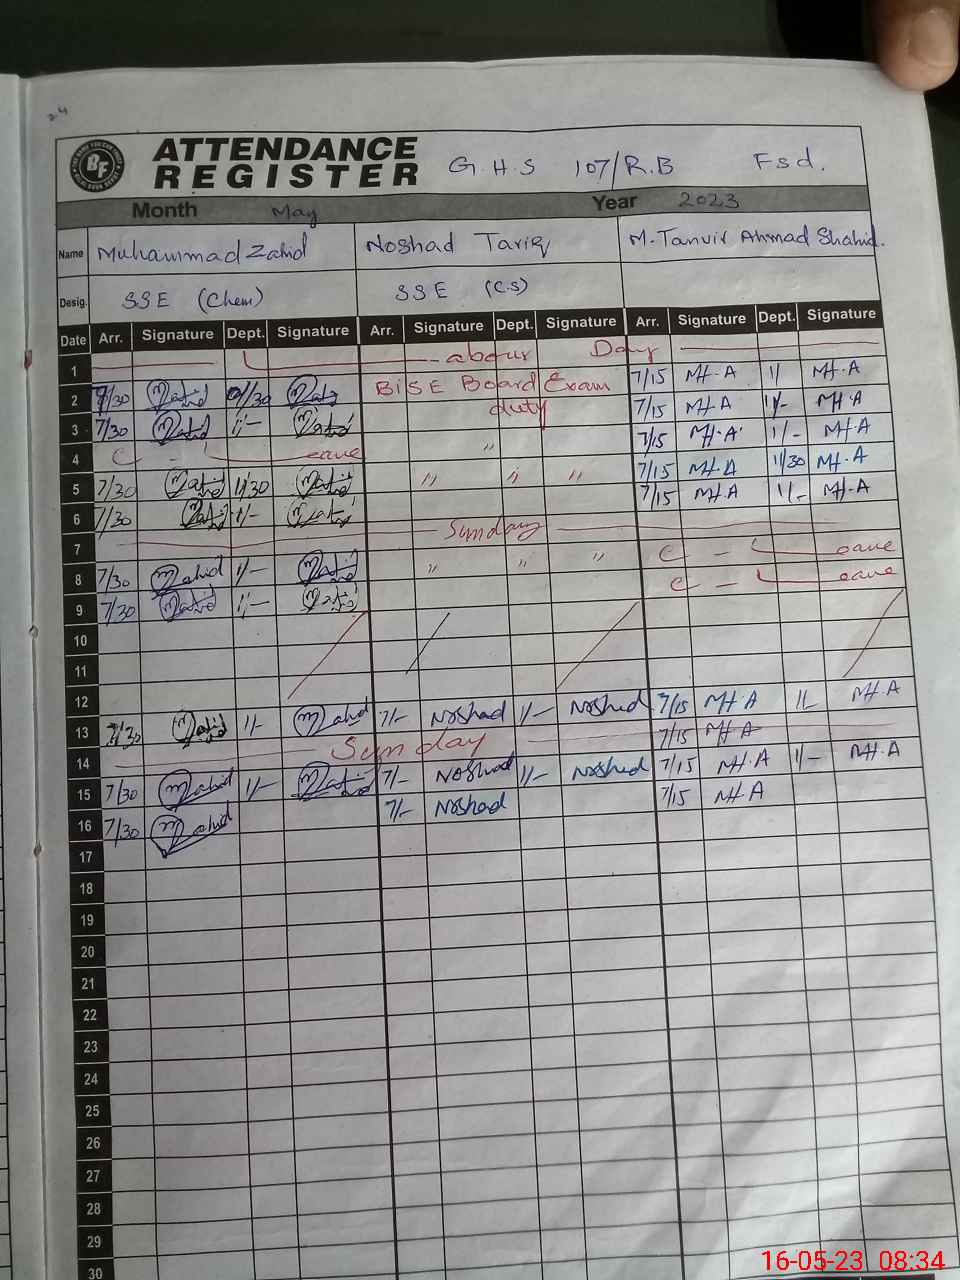 24
ATTENDANCE REGISTER G.H.S 107/R.B Fsd.
BF
Month May Year 2023
Name Muhammad Zahid Noshad Tariq M. Tanvir Ahmad Shahid.
Desig. SSE (Chem) SSE (C.S)
Date Arr. Signature Dept. Signature Arr. Signature Dept. Signature Arr. Signature Dept. Signature
1 Labour Day
2 7/30 Zahid Zahid BISE Board Exam duty 7/15 M.A 1/ M.A
3 7/30 Zahid 1/- Zahid 7/15 M.A 1/- M.A
4 C - Leave " 7/15 M.A 1/- M.A
5 7/30 Zahid 1/30 Zahid " " " 7/15 M.A 1/30 M.A
6 7/30 Zahid 1/- Zahid 7/15 M.A 1/- M.A
7 Sunday
8 7/30 Zahid 1/- Zahid " " " C - Leave
9 7/30 Zahid 1/- Zahid C - Leave
10
11
12
13 7/30 Zahid 1/- Zahid 7/- Noshad 1/- Noshad 7/15 M.A 1/- M.A
14 Sunday 7/15 M.A
15 7/30 Zahid 1/- Zahid 7/- Noshad 1/- Noshad 7/15 M.A 1/- M.A
16 7/30 Zahid 7/- Noshad 7/15 M.A
17
18
19
20
21
22
23
24
25
26
27
28
29
30
16-05-23 08:34